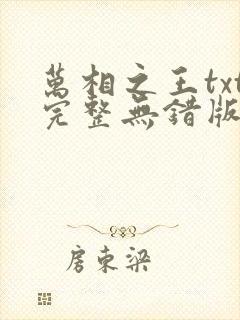 萬相之王txt
完整無錯版
房東梁